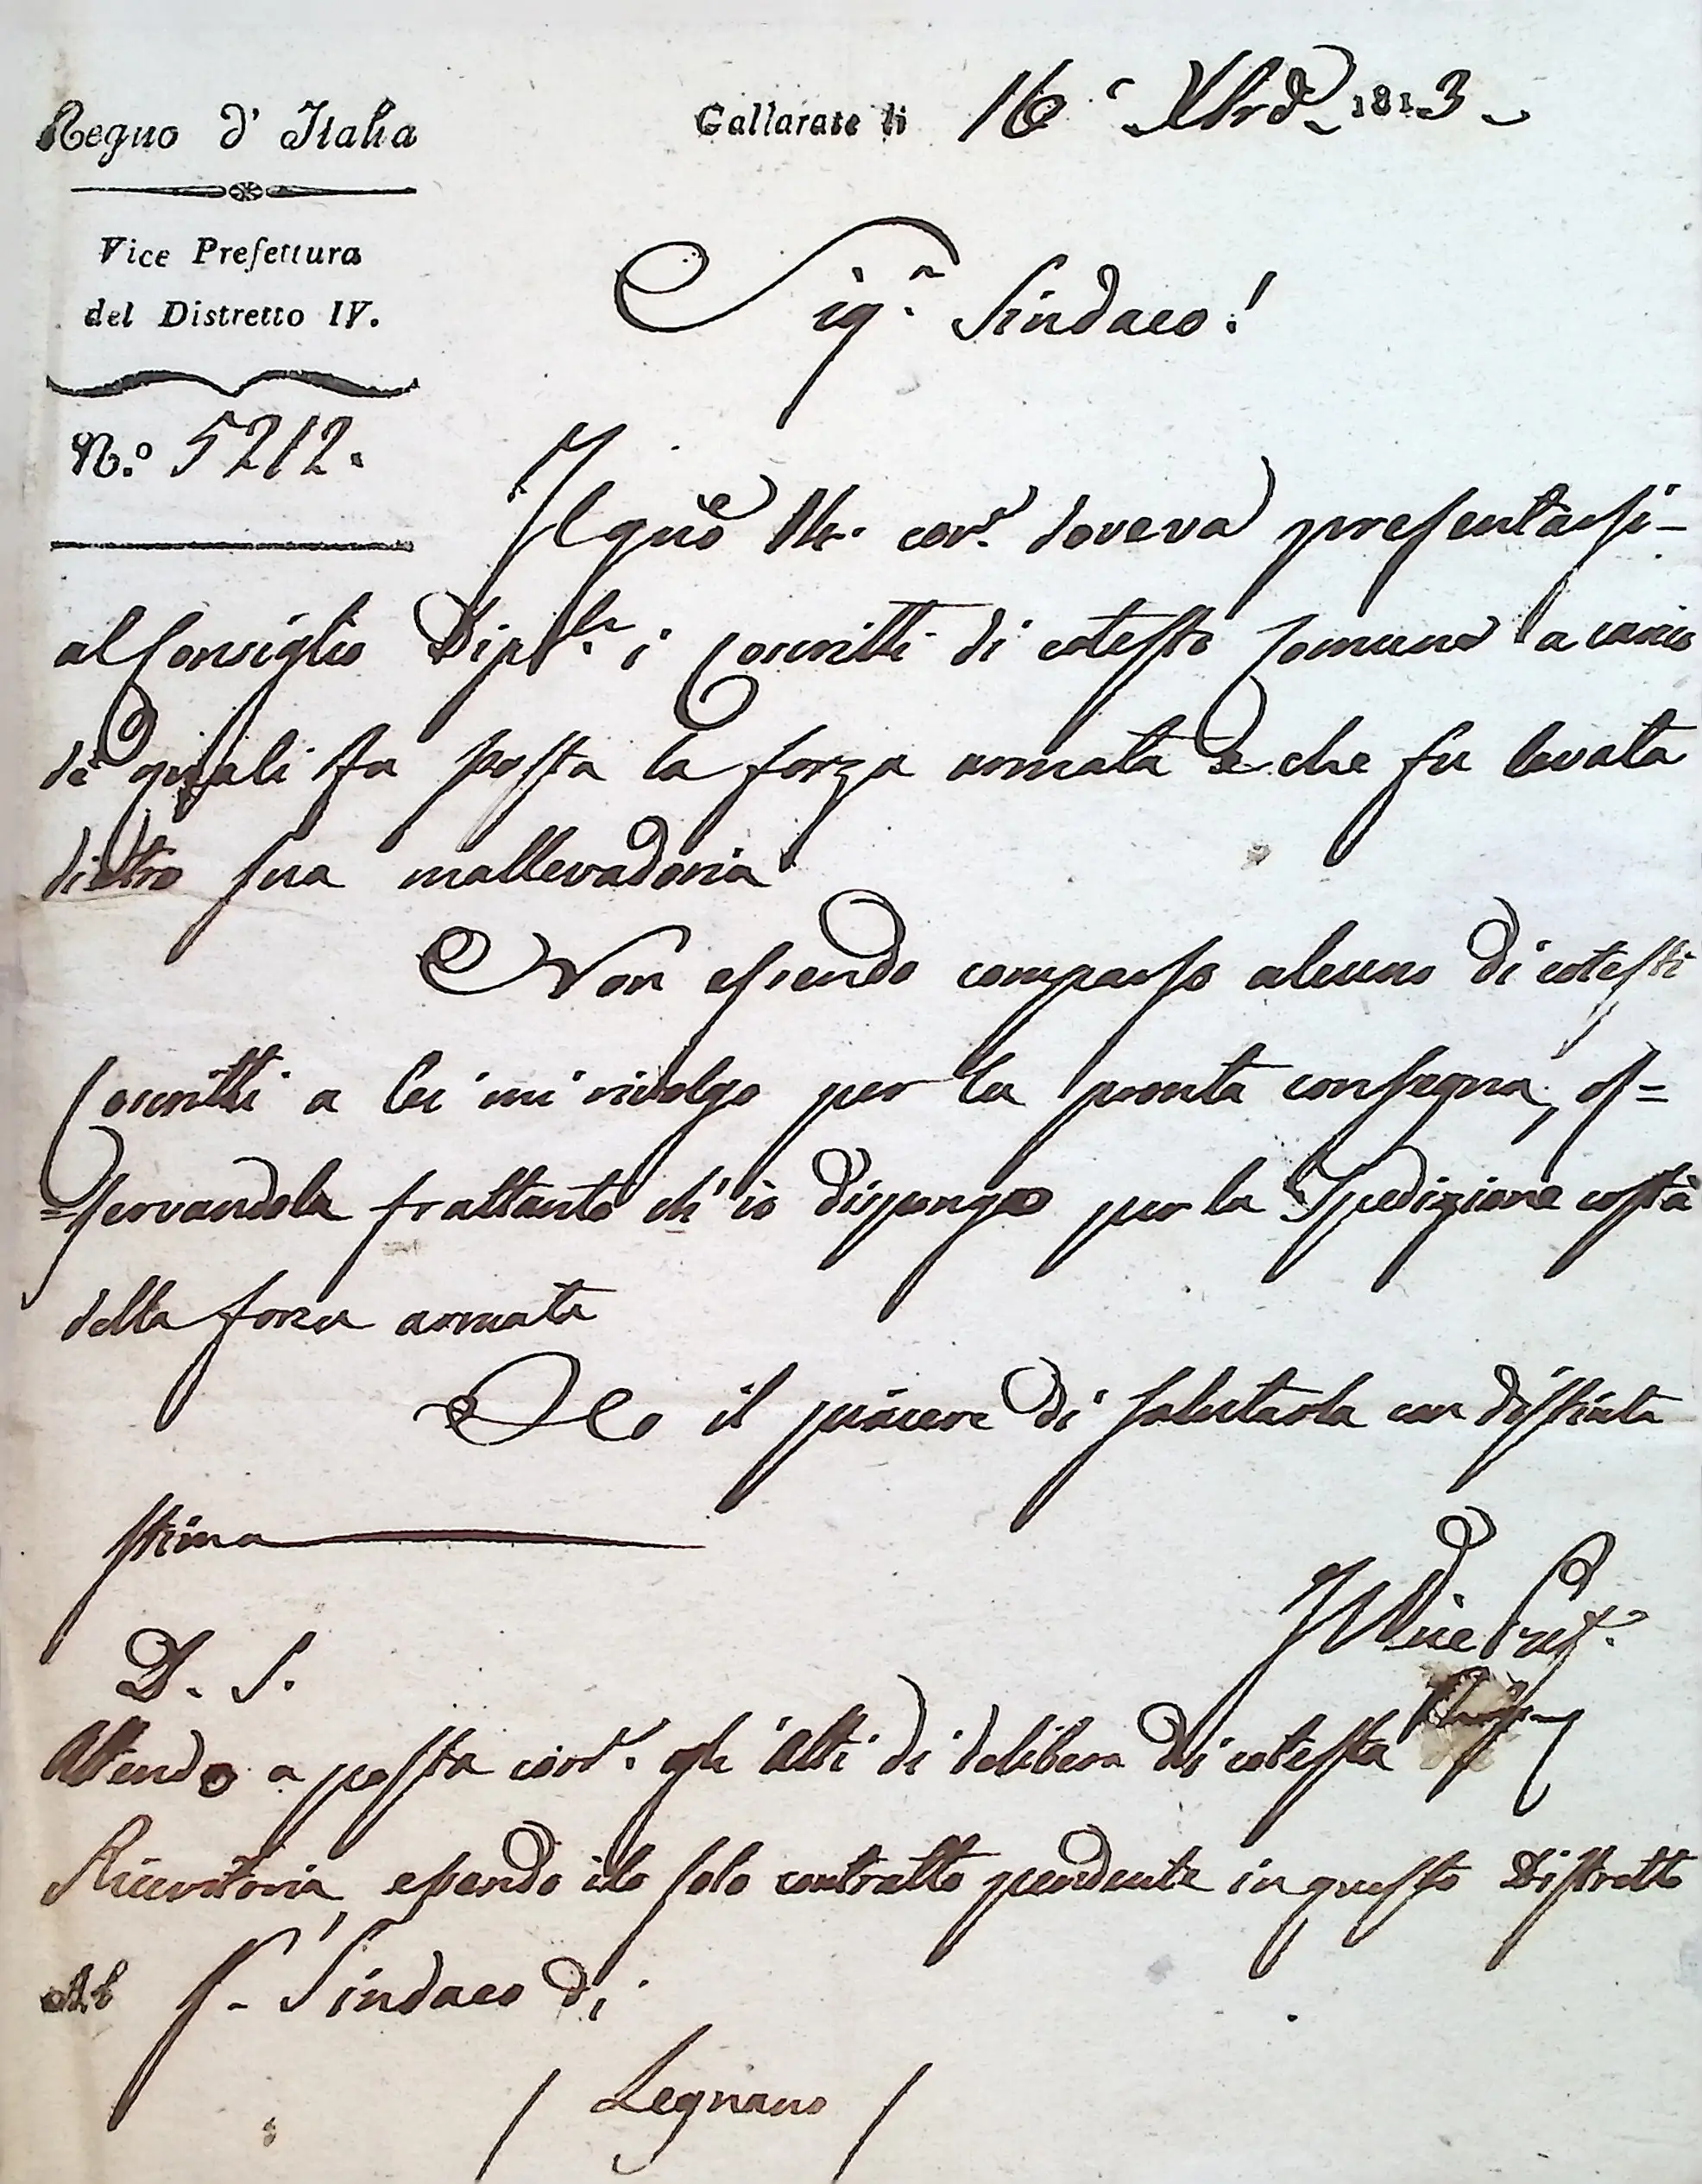 Regno d' Italia
Gallarate li 16 Xbre 1813
Vice Prefettura
del Distretto IV.
Sig.r Sindaco!
N.º 5212.
Il gno 14. corr. doveva presentarsi
al Consiglio Dip.le i Coscritti di cotesto Comune a carico
de quali fu posta la forza armata e che fu levata
dietro sua mallevadoria
Non essendo comparso alcuno di cotesti
Coscritti a lei mi rivolgo per la pronta consegna, os=
=servandola frattanto ch' io dispongo per la Spedizione costà
della forza armata
Ho il piacere di salutarla con distinta
stima
Il Vice Pref.
P. S.
Attendo a posta corr. gli atti di delibera di cotesta
Ricevitoria, essendo il solo contratto pendente in questo Distretto
Al S. Sindaco di
/ Legnano /